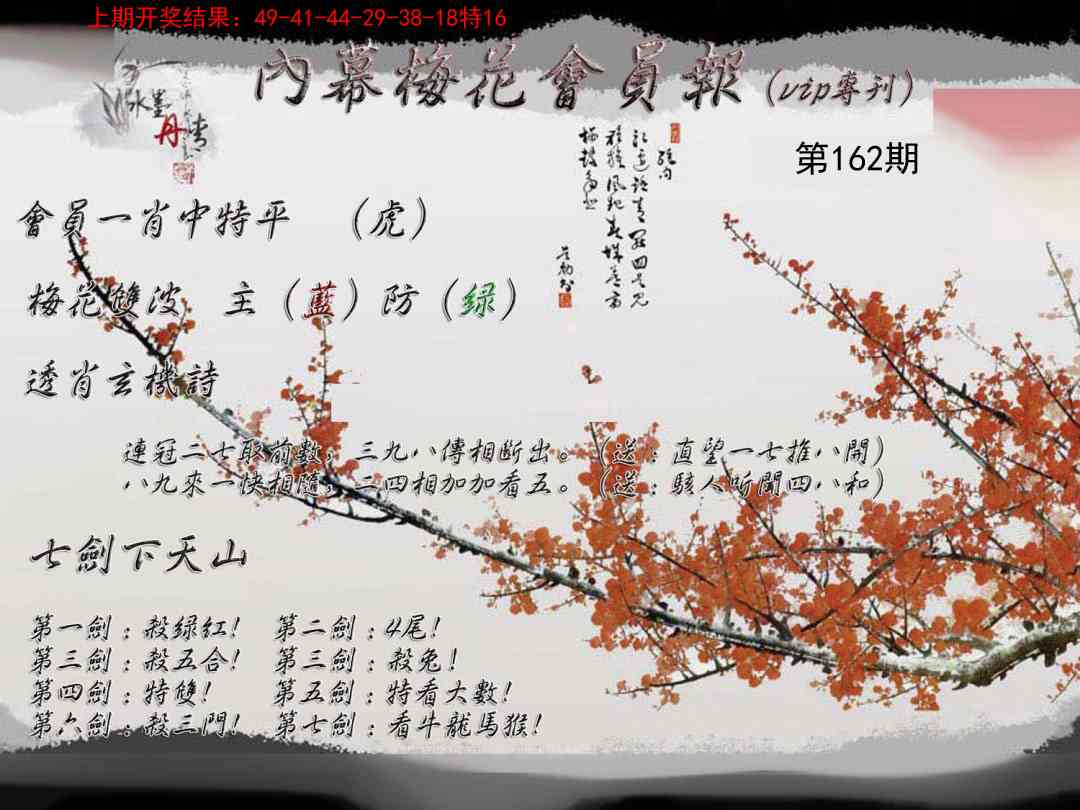 上期开奖结果：49-41-44-29-38-18特16
內幕梅花會員報（vip專刊）
水墨
丹青
第162期
會員一肖中特平 （虎）
梅花雙波 主（藍）防（绿）
透肖玄機詩
連冠二七取前數，三九八傳相斷出。（送：直望一七推八開）
八九來一快相隨，二四相加加看五。（送：駭人听聞四八和）
七劍下天山
第一劍：殺绿红！ 第二劍：4尾！
第三劍：殺五合！ 第三劍：殺兔！
第四劍：特雙！ 第五劍：特看大數！
第六劍：殺三門！ 第七劍：看牛龍馬猴！